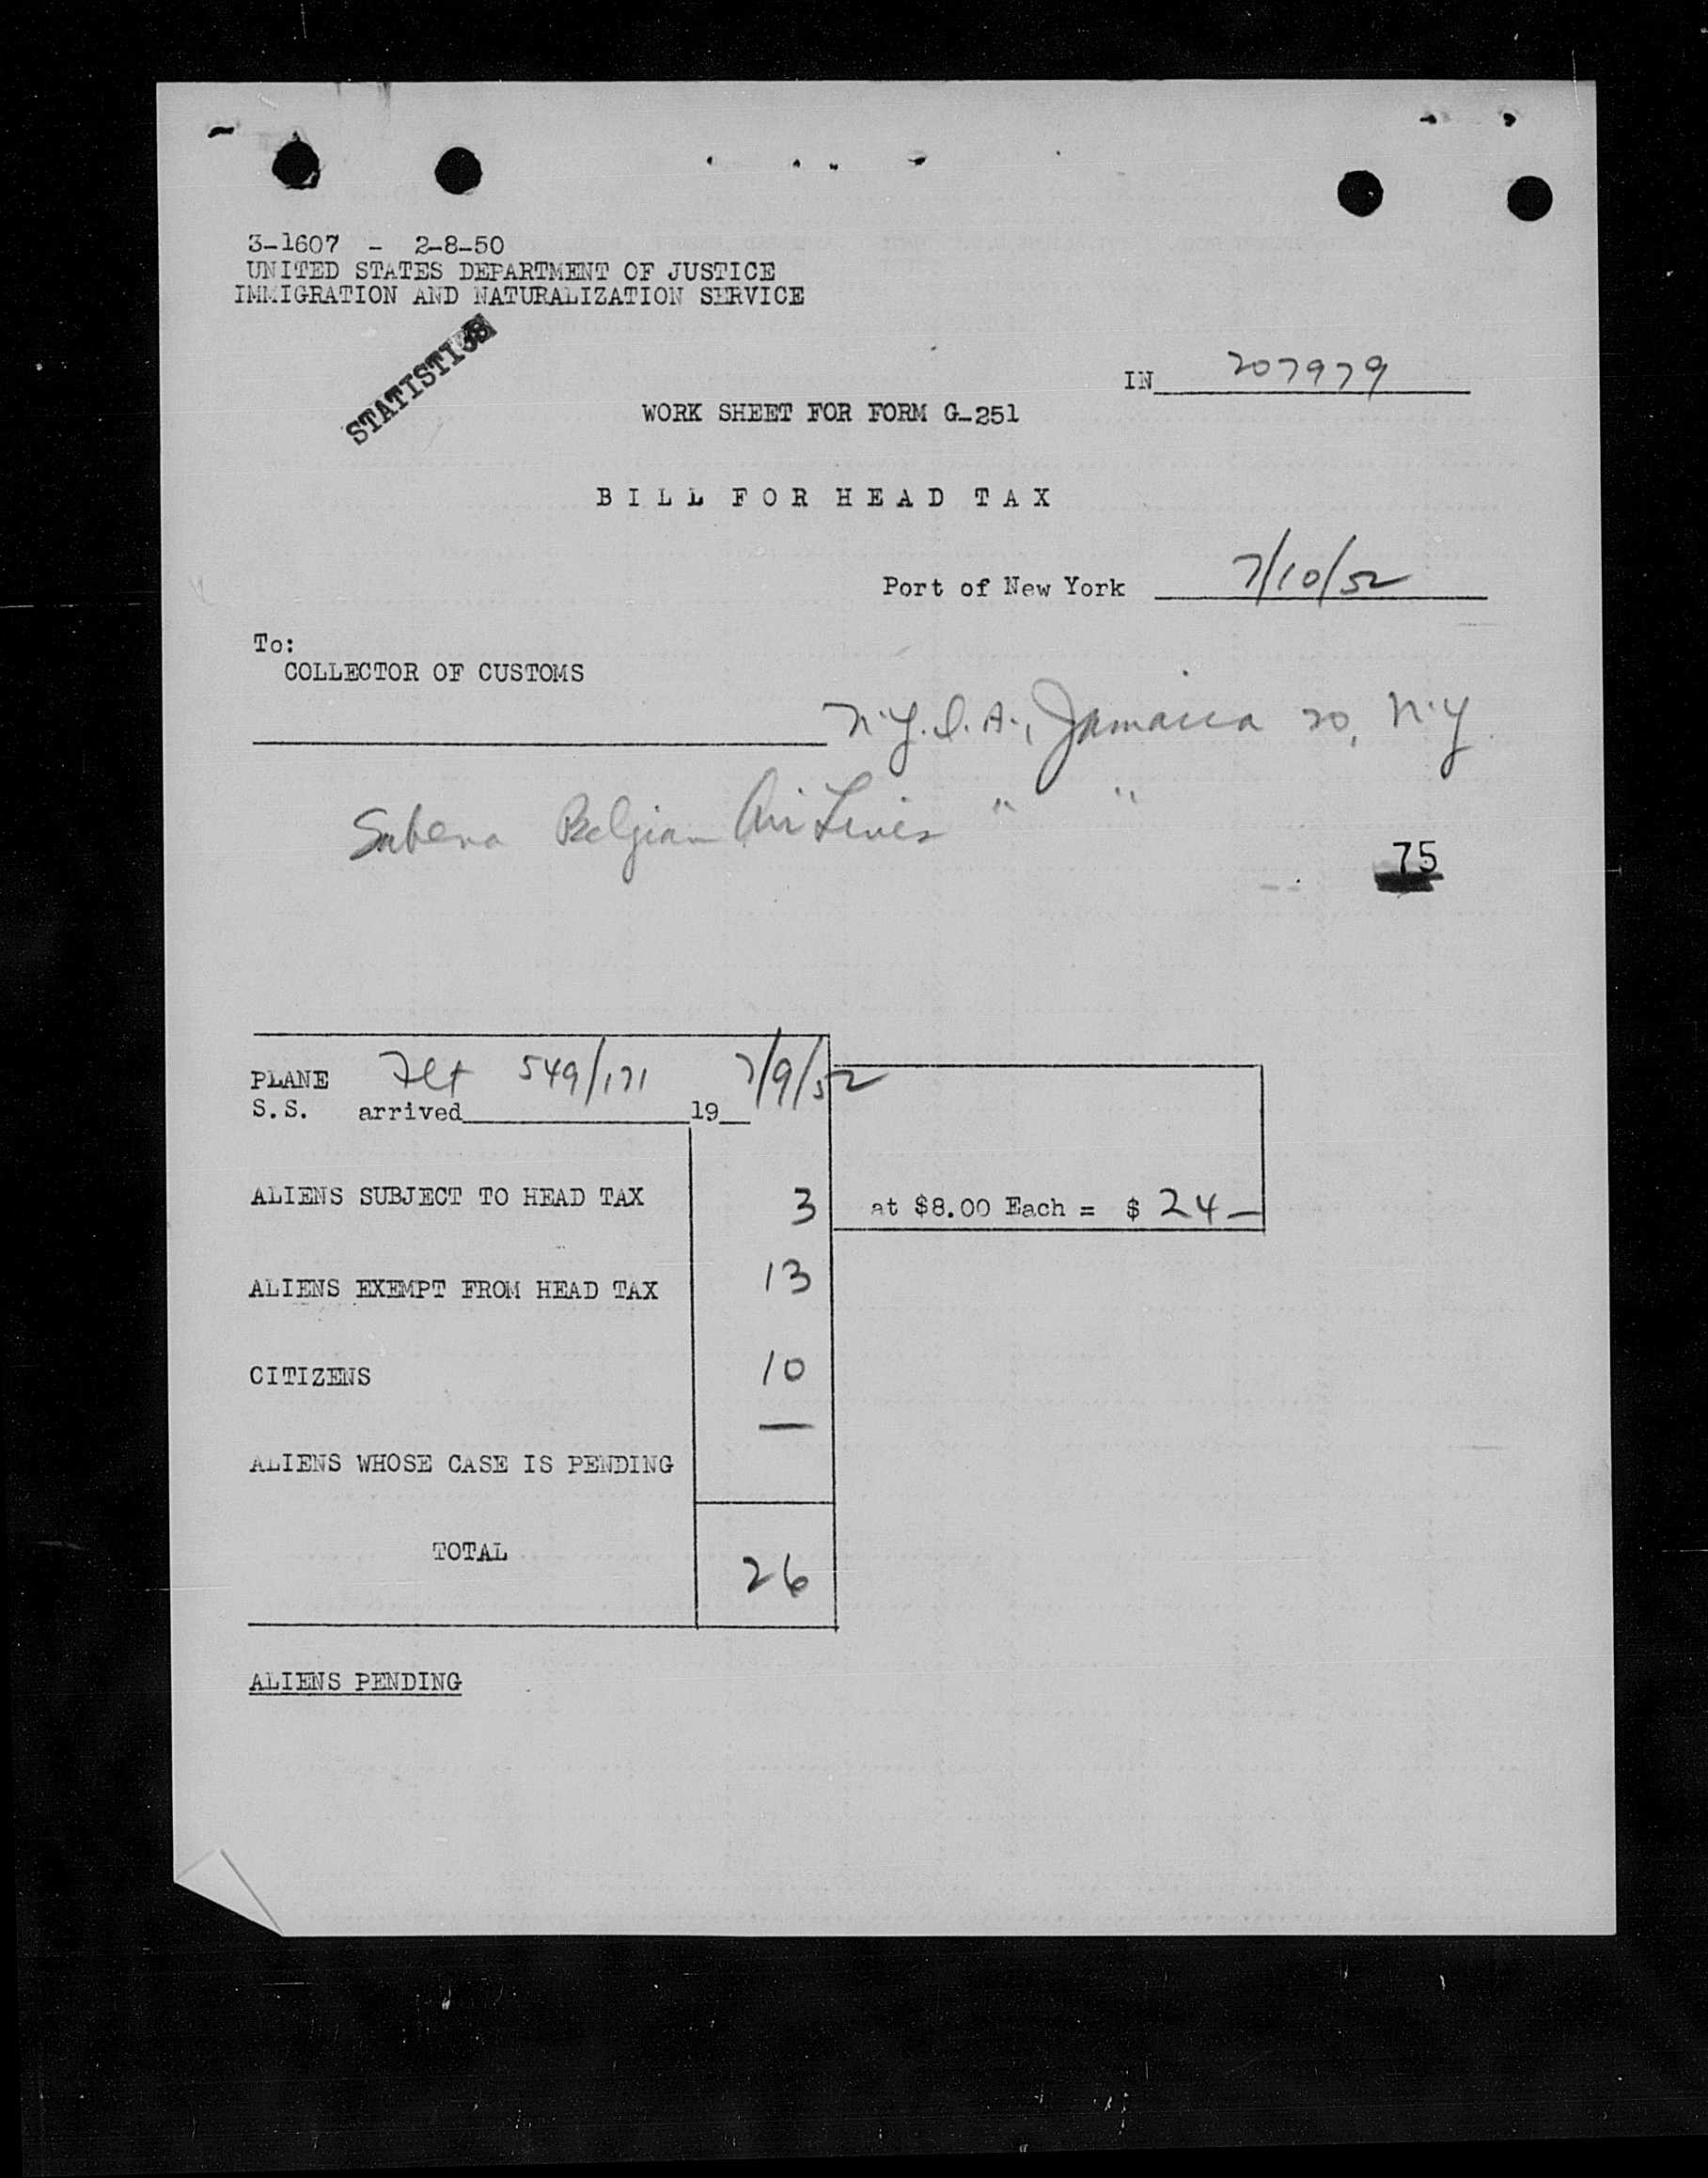 3-1607 - 2-8-50
UNITED STATES DEPARTMENT OF JUSTICE
IMMIGRATION AND NATURALIZATION SERVICE
STATISTICS
IN 207979
WORK SHEET FOR FORM G-251
BILL FOR HEAD TAX
Port of New York 7/10/52
To:
COLLECTOR OF CUSTOMS
N.Y.I.A., Jamaica 20, N.Y.
Sabena Belgian Air Lines " "
75
PLANE Flt 549/171 7/9/52
S.S. arrived 19
ALIENS SUBJECT TO HEAD TAX 3 at $8.00 Each = $ 24 —
ALIENS EXEMPT FROM HEAD TAX 13
CITIZENS 10
—
ALIENS WHOSE CASE IS PENDING
TOTAL 26
ALIENS PENDING